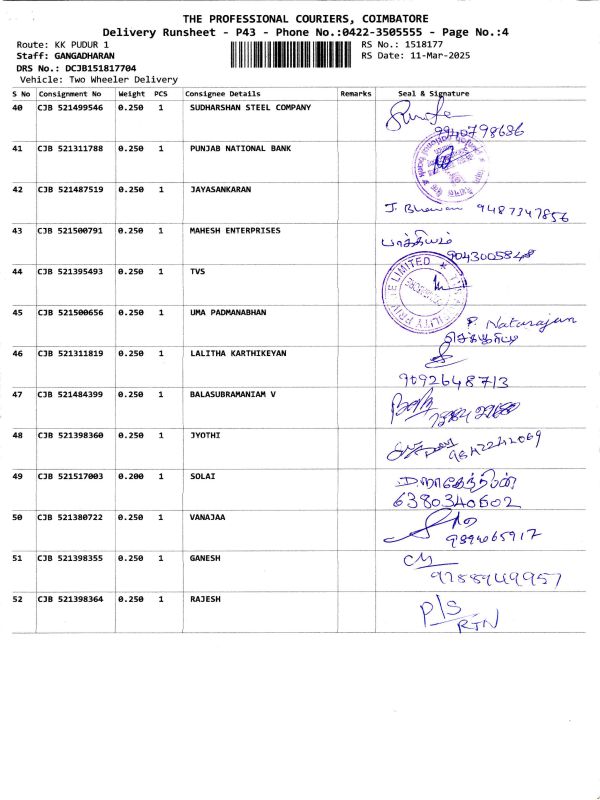 THE PROFESSIONAL COURIERS, COIMBATORE
Delivery Runsheet - P43 - Phone No.:0422-3505555 - Page No.:4
Route: KK PUDUR 1 RS No.: 1518177
Staff: GANGADHARAN RS Date: 11-Mar-2025
DRS No.: DCJB151817704
Vehicle: Two Wheeler Delivery
S No Consignment No Weight PCS Consignee Details Remarks Seal & Signature
40 CJB 521499546 0.250 1 SUDHARSHAN STEEL COMPANY
9940798686
41 CJB 521311788 0.250 1 PUNJAB NATIONAL BANK
42 CJB 521487519 0.250 1 JAYASANKARAN
9487347856
43 CJB 521500791 0.250 1 MAHESH ENTERPRISES
9043005848
44 CJB 521395493 0.250 1 TVS
PRIVATE LIMITED
45 CJB 521500656 0.250 1 UMA PADMANABHAN
P. Natarajan
46 CJB 521311819 0.250 1 LALITHA KARTHIKEYAN
9092648713
47 CJB 521484399 0.250 1 BALASUBRAMANIAM V
48 CJB 521398360 0.250 1 JYOTHI
9842242069
49 CJB 521517003 0.200 1 SOLAI
6380340602
50 CJB 521380722 0.250 1 VANAJAA
9894065917
51 CJB 521398355 0.250 1 GANESH
52 CJB 521398364 0.250 1 RAJESH
P/S
RTN